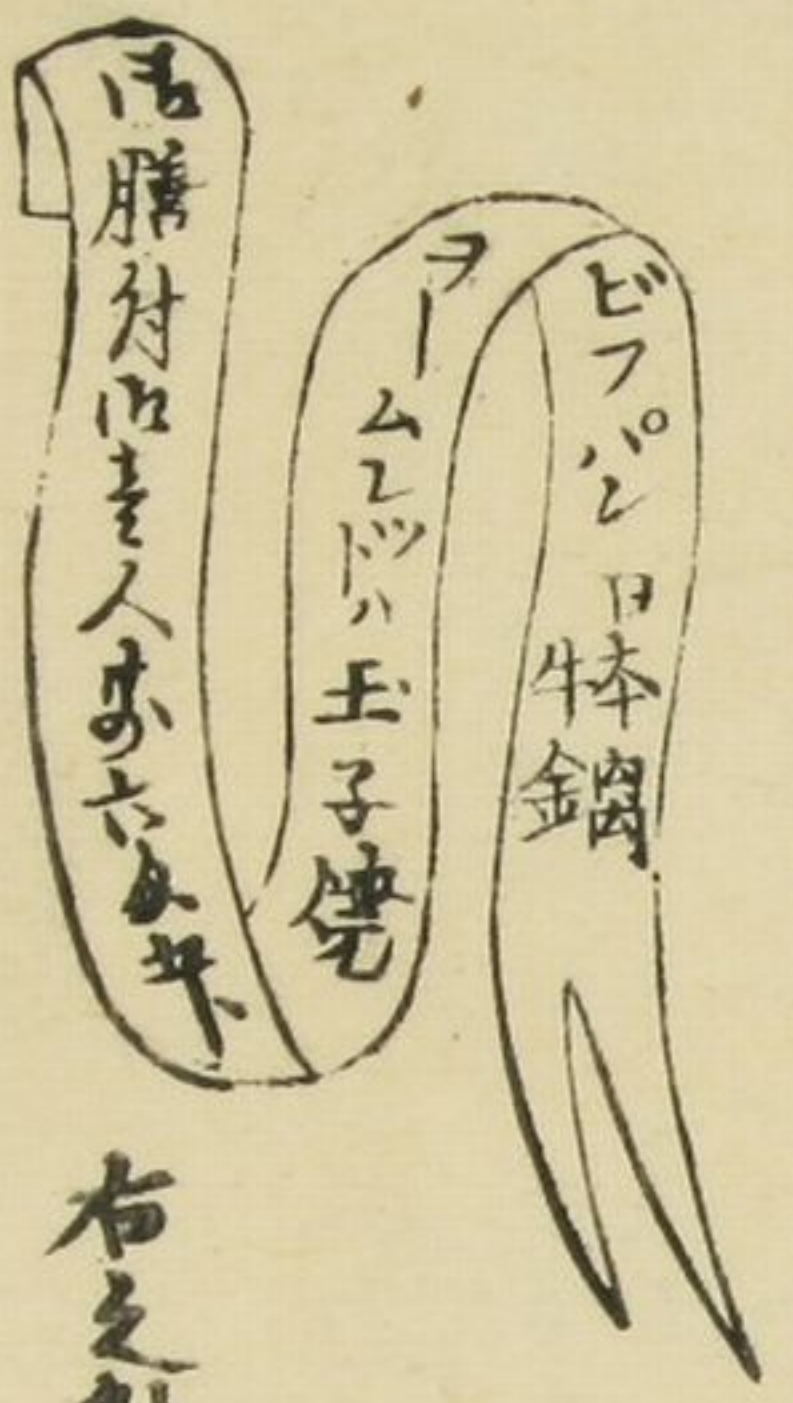 ビフパン 日本牛鍋
ヲームレツトハ 玉子焼
御膳付御壱人前六匁
右之